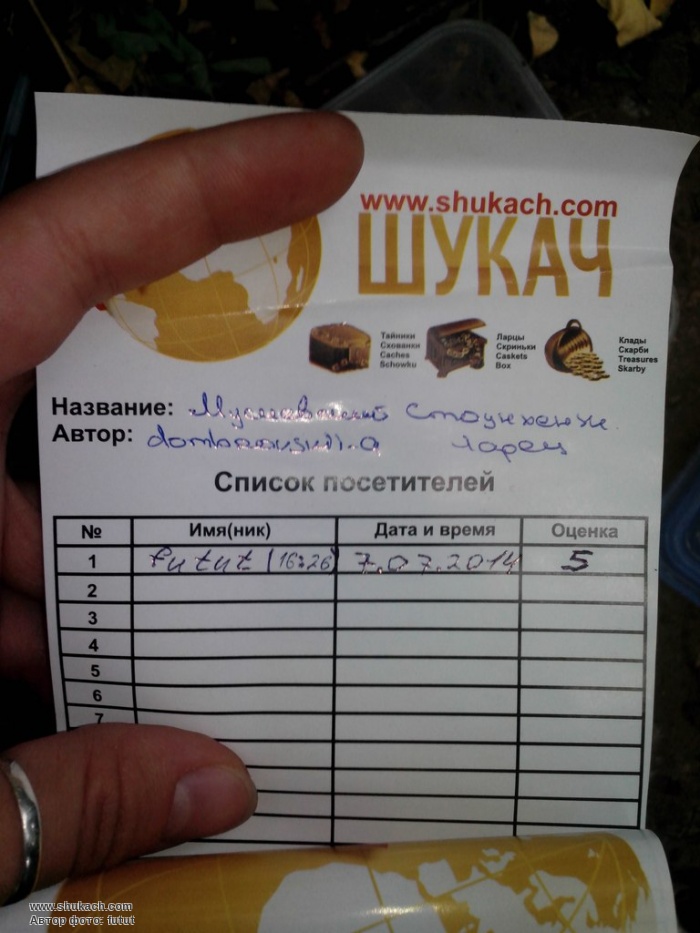 www.shukach.com
ШУКАЧ
Тайники
Схованки
Caches
Schowku
Ларцы
Скриньки
Caskets
Box
Клады
Скарби
Treasures
Skarby
Название: Стоунхендж
Автор: ларец
Список посетителей
№ Имя(ник) Дата и время Оценка
1 futut (16:26) 7.07.2014 5
2
3
4
5
6
7
www.shukach.com
Автор фото: futut